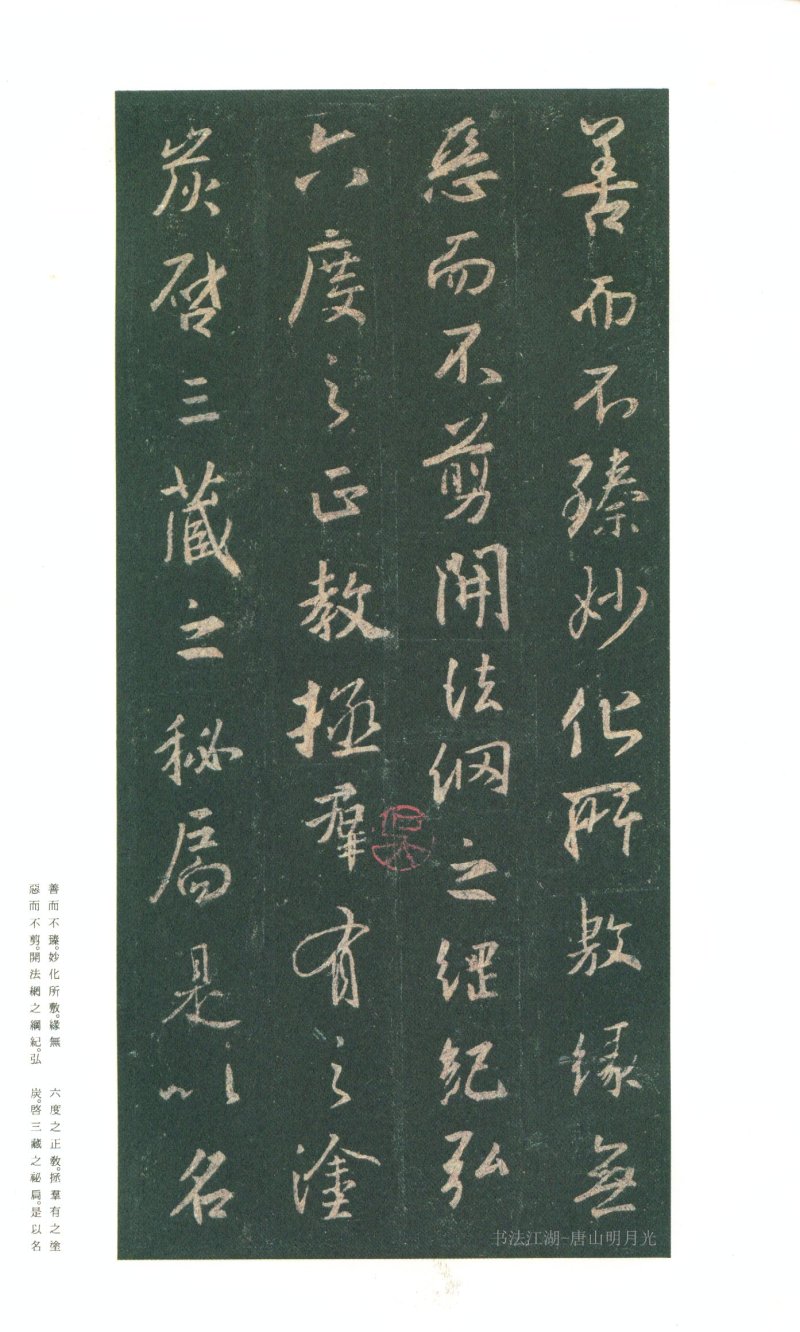 善而不臻妙化所敷緣無
惡而不剪開法網之綱紀弘
六度之正教拯羣有之塗
炭啓三藏之秘扃是以名
善而不臻。妙化所敷。緣無
惡而不剪。開法網之綱紀。弘
六度之正教。拯羣有之塗
炭。啓三藏之祕扃。是以名
书法江湖-唐山明月光